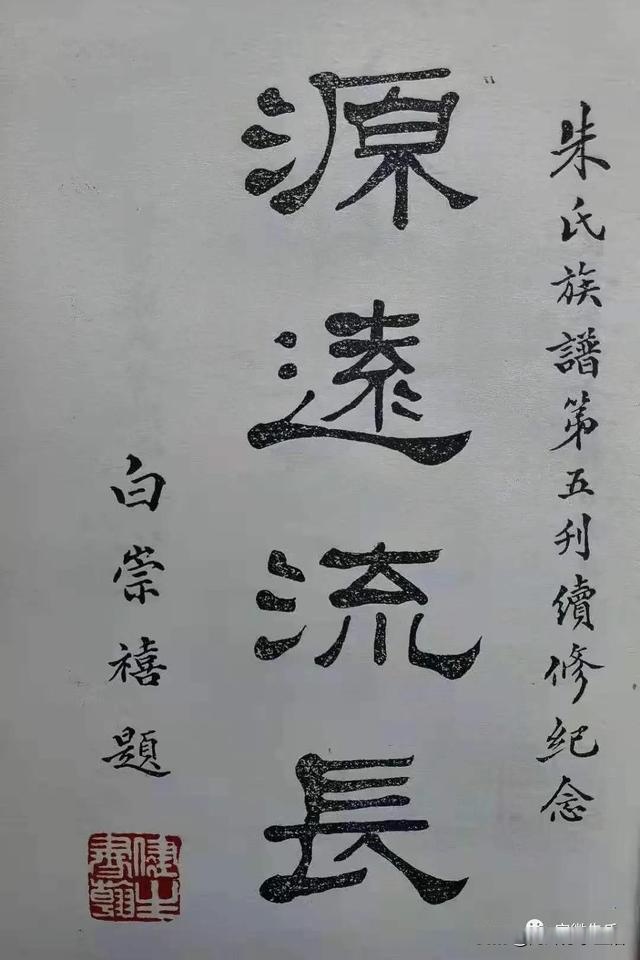 朱氏族譜第五刋續修紀念
源遠流長
白崇禧題
健生書翰